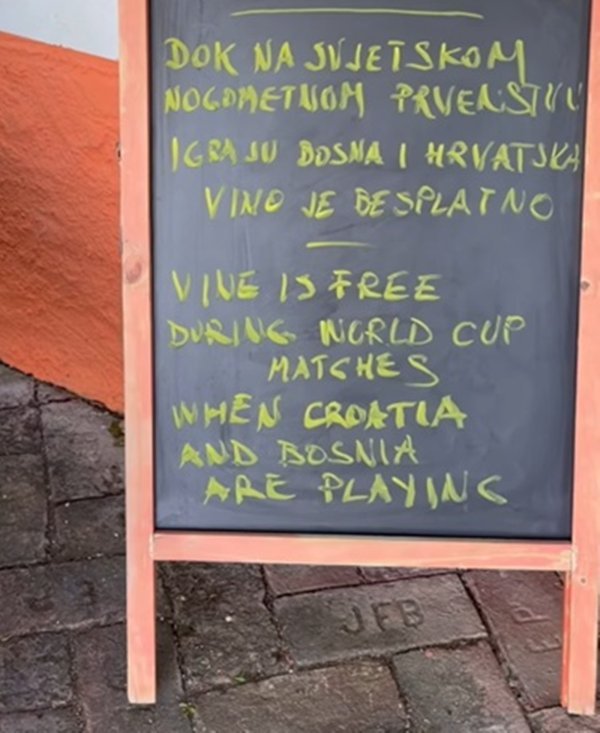 DOK NA SVJETSKOM
NOGOMETNOM PRVENSTVU
IGRAJU BOSNA I HRVATSKA
VINO JE BESPLATNO
VINE IS FREE
DURING WORLD CUP
MATCHES
WHEN CROATIA
AND BOSNIA
ARE PLAYING
JFB